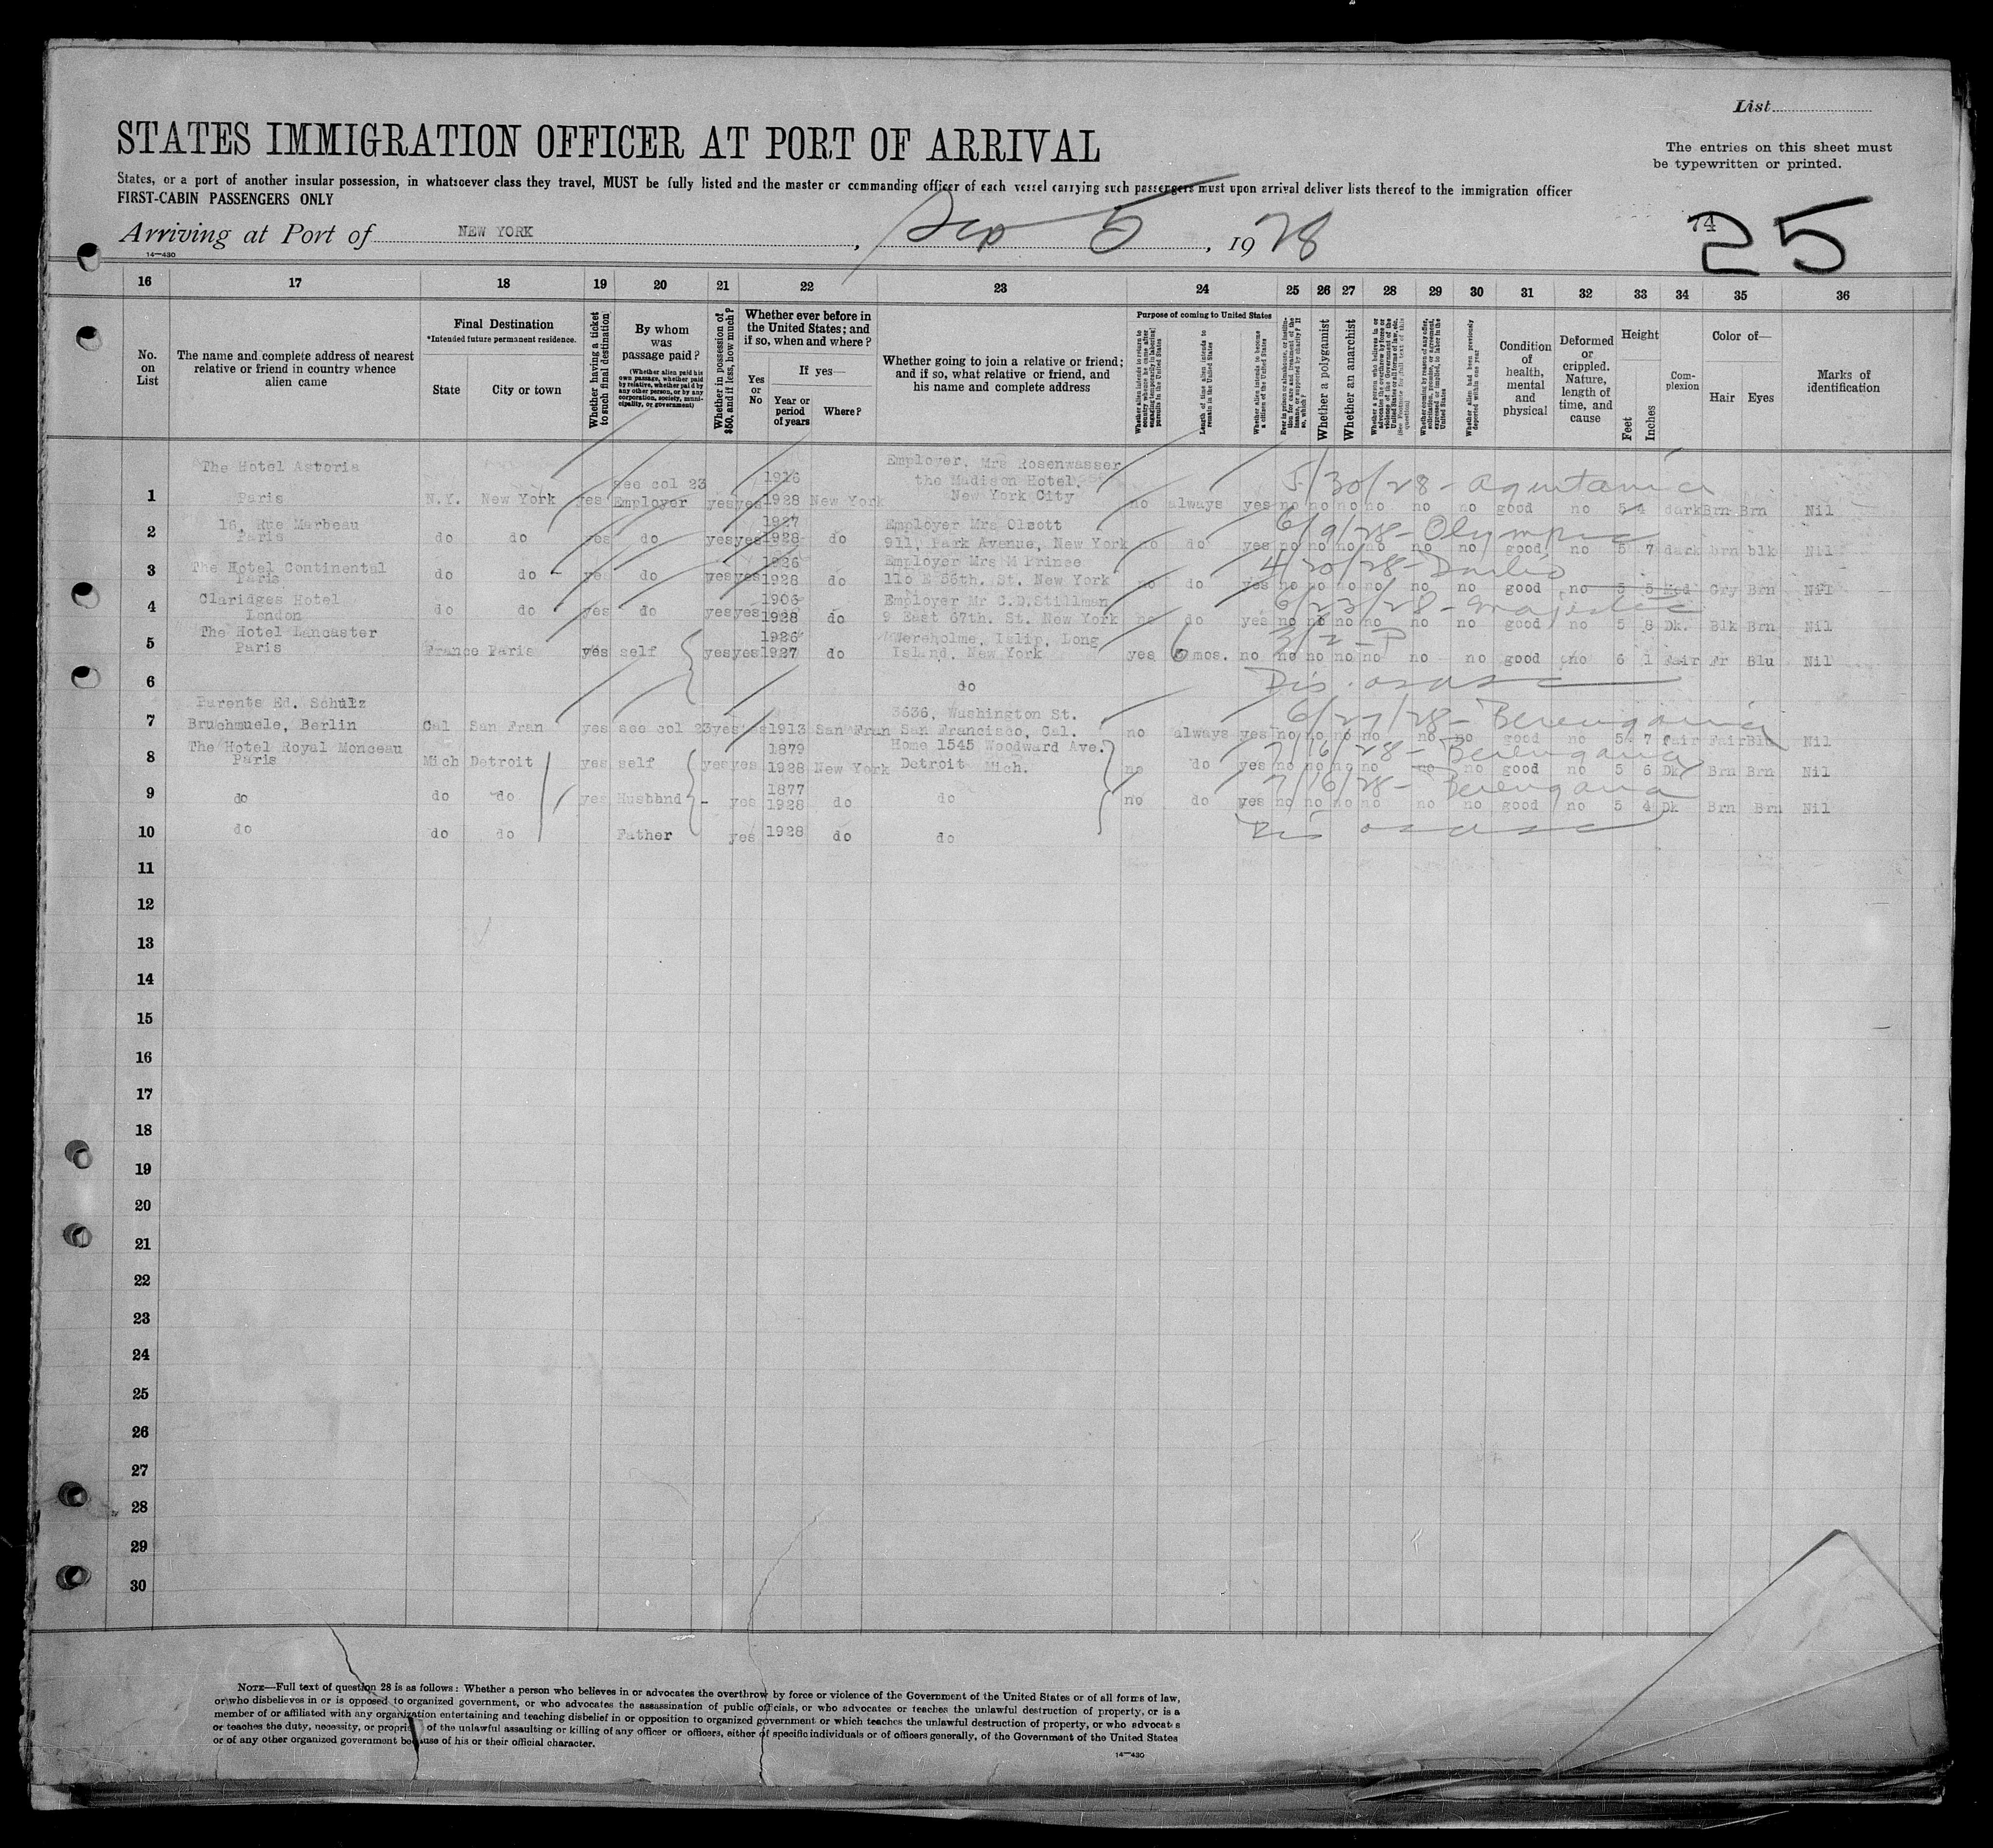 List
STATES IMMIGRATION OFFICER AT PORT OF ARRIVAL
The entries on this sheet must
be typewritten or printed.
States, or a port of another insular possession, in whatsoever class they travel, MUST be fully listed and the master or commanding officer of each vessel carrying such passengers must upon arrival deliver lists thereof to the immigration officer
FIRST-CABIN PASSENGERS ONLY
Arriving at Port of NEW YORK, Sep 5, 1928
74
25
14—430
16 17 18 19 20 21 22 23 24 25 26 27 28 29 30 31 32 33 34 35 36
No. on List
The name and complete address of nearest relative or friend in country whence alien came
Final Destination
*Intended future permanent residence.
State
City or town
Whether having a ticket to such final destination
By whom was passage paid?
(Whether alien paid his own passage, whether paid by relative, whether paid by any other person, or by any corporation, society, municipality, or government)
Whether in possession of $50, and if less, how much?
Whether ever before in the United States; and if so, when and where?
Yes or No
If yes—
Year or period of years
Where?
Whether going to join a relative or friend; and if so, what relative or friend, and his name and complete address
Purpose of coming to United States
Whether alien intends to return to country whence he came after engaging temporarily in laboring pursuits in the United States
Length of time alien intends to remain in the United States
Whether alien intends to become a citizen of the United States
Ever in prison or almshouse, or institution for care and treatment of the insane, or supported by charity? If so, which?
Whether a polygamist
Whether an anarchist
Whether coming by reason of any offer, solicitation, promise, or agreement, expressed or implied, to labor in the United States
Whether alien had been previously deported within one year
Condition of health, mental and physical
Deformed or crippled. Nature, length of time, and cause
Height
Feet
Inches
Complexion
Color of—
Hair
Eyes
Marks of identification
1 The Hotel Astoria Paris N.Y. New York yes see col 23 Employer yes yes 1928 New York Employer, Mrs Rosenwasser the Madison Hotel, New York City no always yes no no no no no no good no 5 4 dark Brn Brn Nil
5/30/28 - Aquitania
2 16, Rue Marbeau Paris do do yes do yes yes 1927 1928 do Employer Mrs Olcott 911, Park Avenue, New York no do yes no no no no no no good no 5 7 dark brn blk Nil
6/9/28 - Olympic
3 The Hotel Continental Paris do do yes do yes yes 1926 1928 do Employer Mrs M Prince 116 E 56th. St. New York no do yes no no no no no no good no 5 5 Med Gry Brn Nil
4/20/28 -
4 Claridges Hotel London do do yes do yes yes 1906 1928 do Employer Mr C.D.Stillman 9 East 67th. St. New York no do yes no no no no no no good no 5 8 Dk. Blk Brn Nil
6/23/28 - Majestic
5 The Hotel Lancaster Paris France Paris yes self yes yes 1926 1927 do Wereholme, Islip, Long Island, New York yes 6 mos. no no no no no no no good no 6 1 Fair Fr Blu Nil
3/2 - P
6 do
7 Parents Ed. Schulz Bruchmuele, Berlin Cal San Fran yes see col 23 yes yes 1913 San Fran 3636, Washington St. San Francisco, Cal. no always yes no no no no no no good no 5 7 fair Fair Blu Nil
6/27/28 - Berengaria
8 The Hotel Royal Monceau Paris Mich Detroit yes self yes yes 1879 1928 New York Home 1545 Woodward Ave. Detroit Mich. no do yes no no no no no no good no 5 6 Dk Brn Brn Nil
7/16/28 - Berengaria
9 do do do yes Husbhnd - yes 1877 1928 do do no do yes no no no no no no good no 5 4 Dk Brn Brn Nil
7/16/28 - Berengaria
10 do do do Father yes 1928 do do
11
12
13
14
15
16
17
18
19
20
21
22
23
24
25
26
27
28
29
30
NOTE—Full text of question 28 is as follows: Whether a person who believes in or advocates the overthrow by force or violence of the Government of the United States or of all forms of law,
or who disbelieves in or is opposed to organized government, or who advocates the assassination of public officials, or who advocates or teaches the unlawful destruction of property, or is a
member of or affiliated with any organization entertaining and teaching disbelief in or opposition to organized government or which teaches the unlawful destruction of property, or who advocates
or teaches the duty, necessity, or propriety of the unlawful assaulting or killing of any officer or officers, either of specific individuals or of officers generally, of the Government of the United States
or of any other organized government because of his or their official character.
14—430